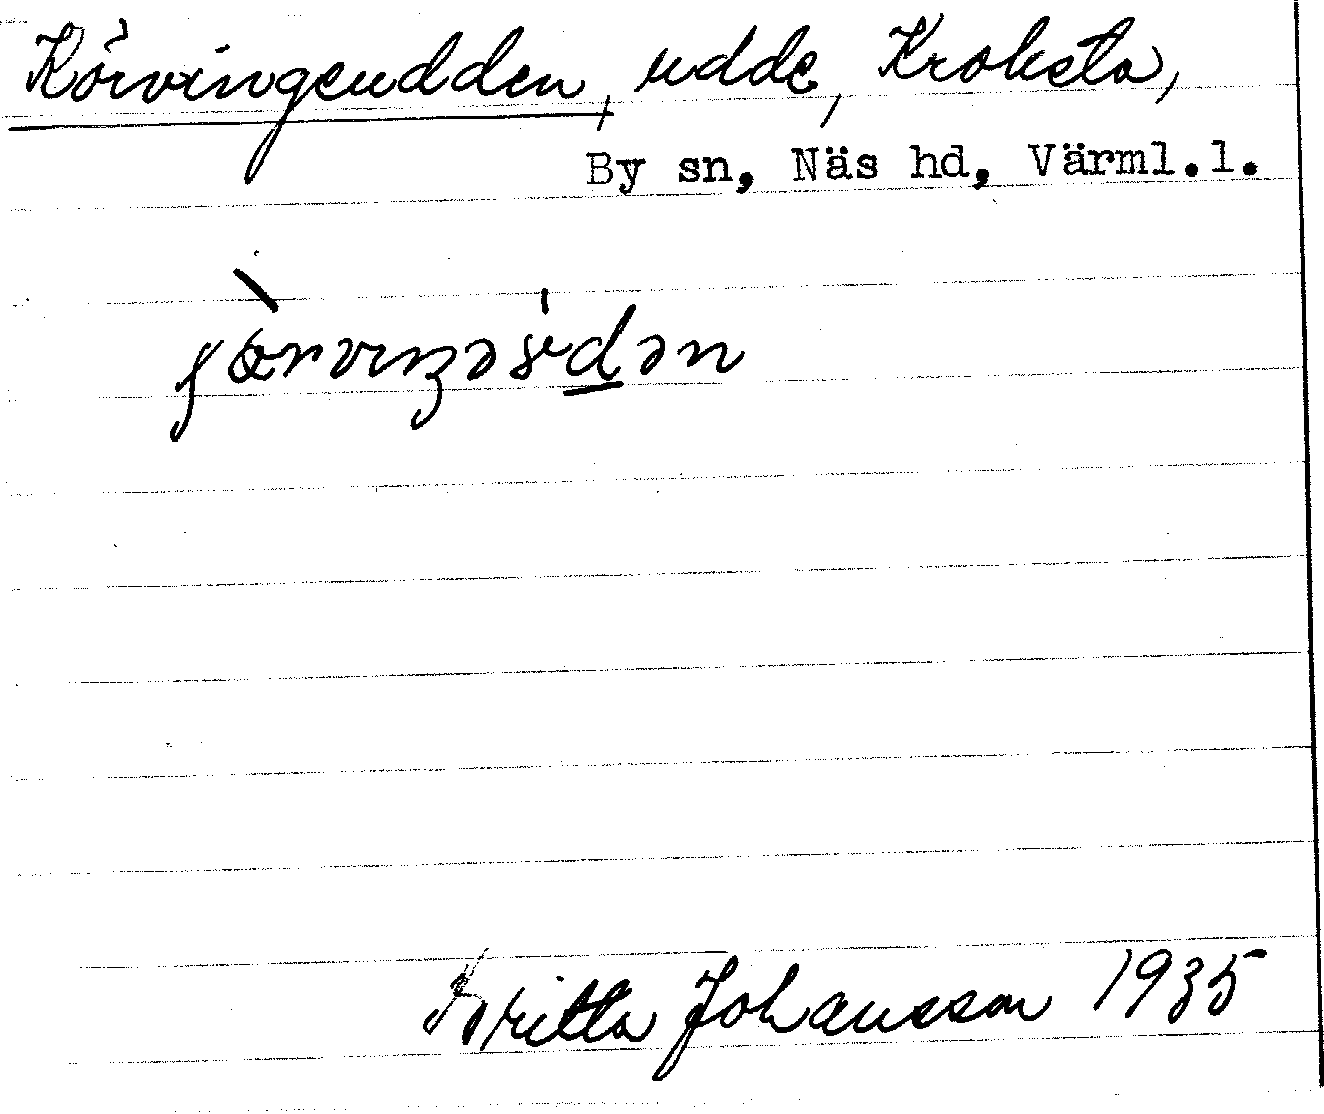 Körvingeudden, udde, Kroksta,
By sn, Näs hd, Värml.l.
Britta Johansson 1935